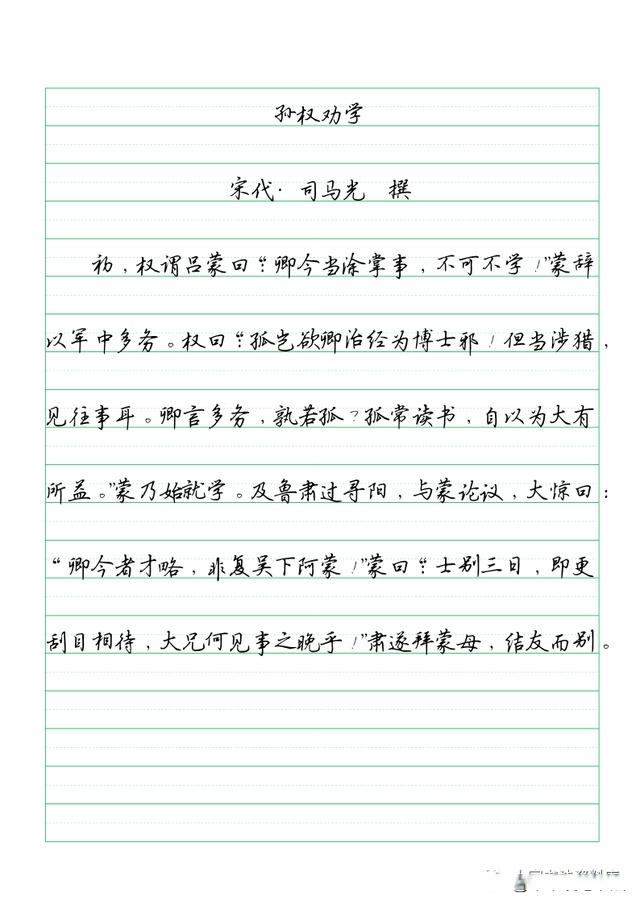 孙权劝学
宋代·司马光 撰
初,权谓吕蒙曰:“卿今当涂掌事,不可不学!”蒙辞
以军中多务。权曰:“孤岂欲卿治经为博士邪!但当涉猎,
见往事耳。卿言多务,孰若孤?孤常读书,自以为大有
所益。”蒙乃始就学。及鲁肃过寻阳,与蒙论议,大惊曰:
“卿今者才略,非复吴下阿蒙!”蒙曰:“士别三日,即更
刮目相待,大兄何见事之晚乎!”肃遂拜蒙母,结友而别。